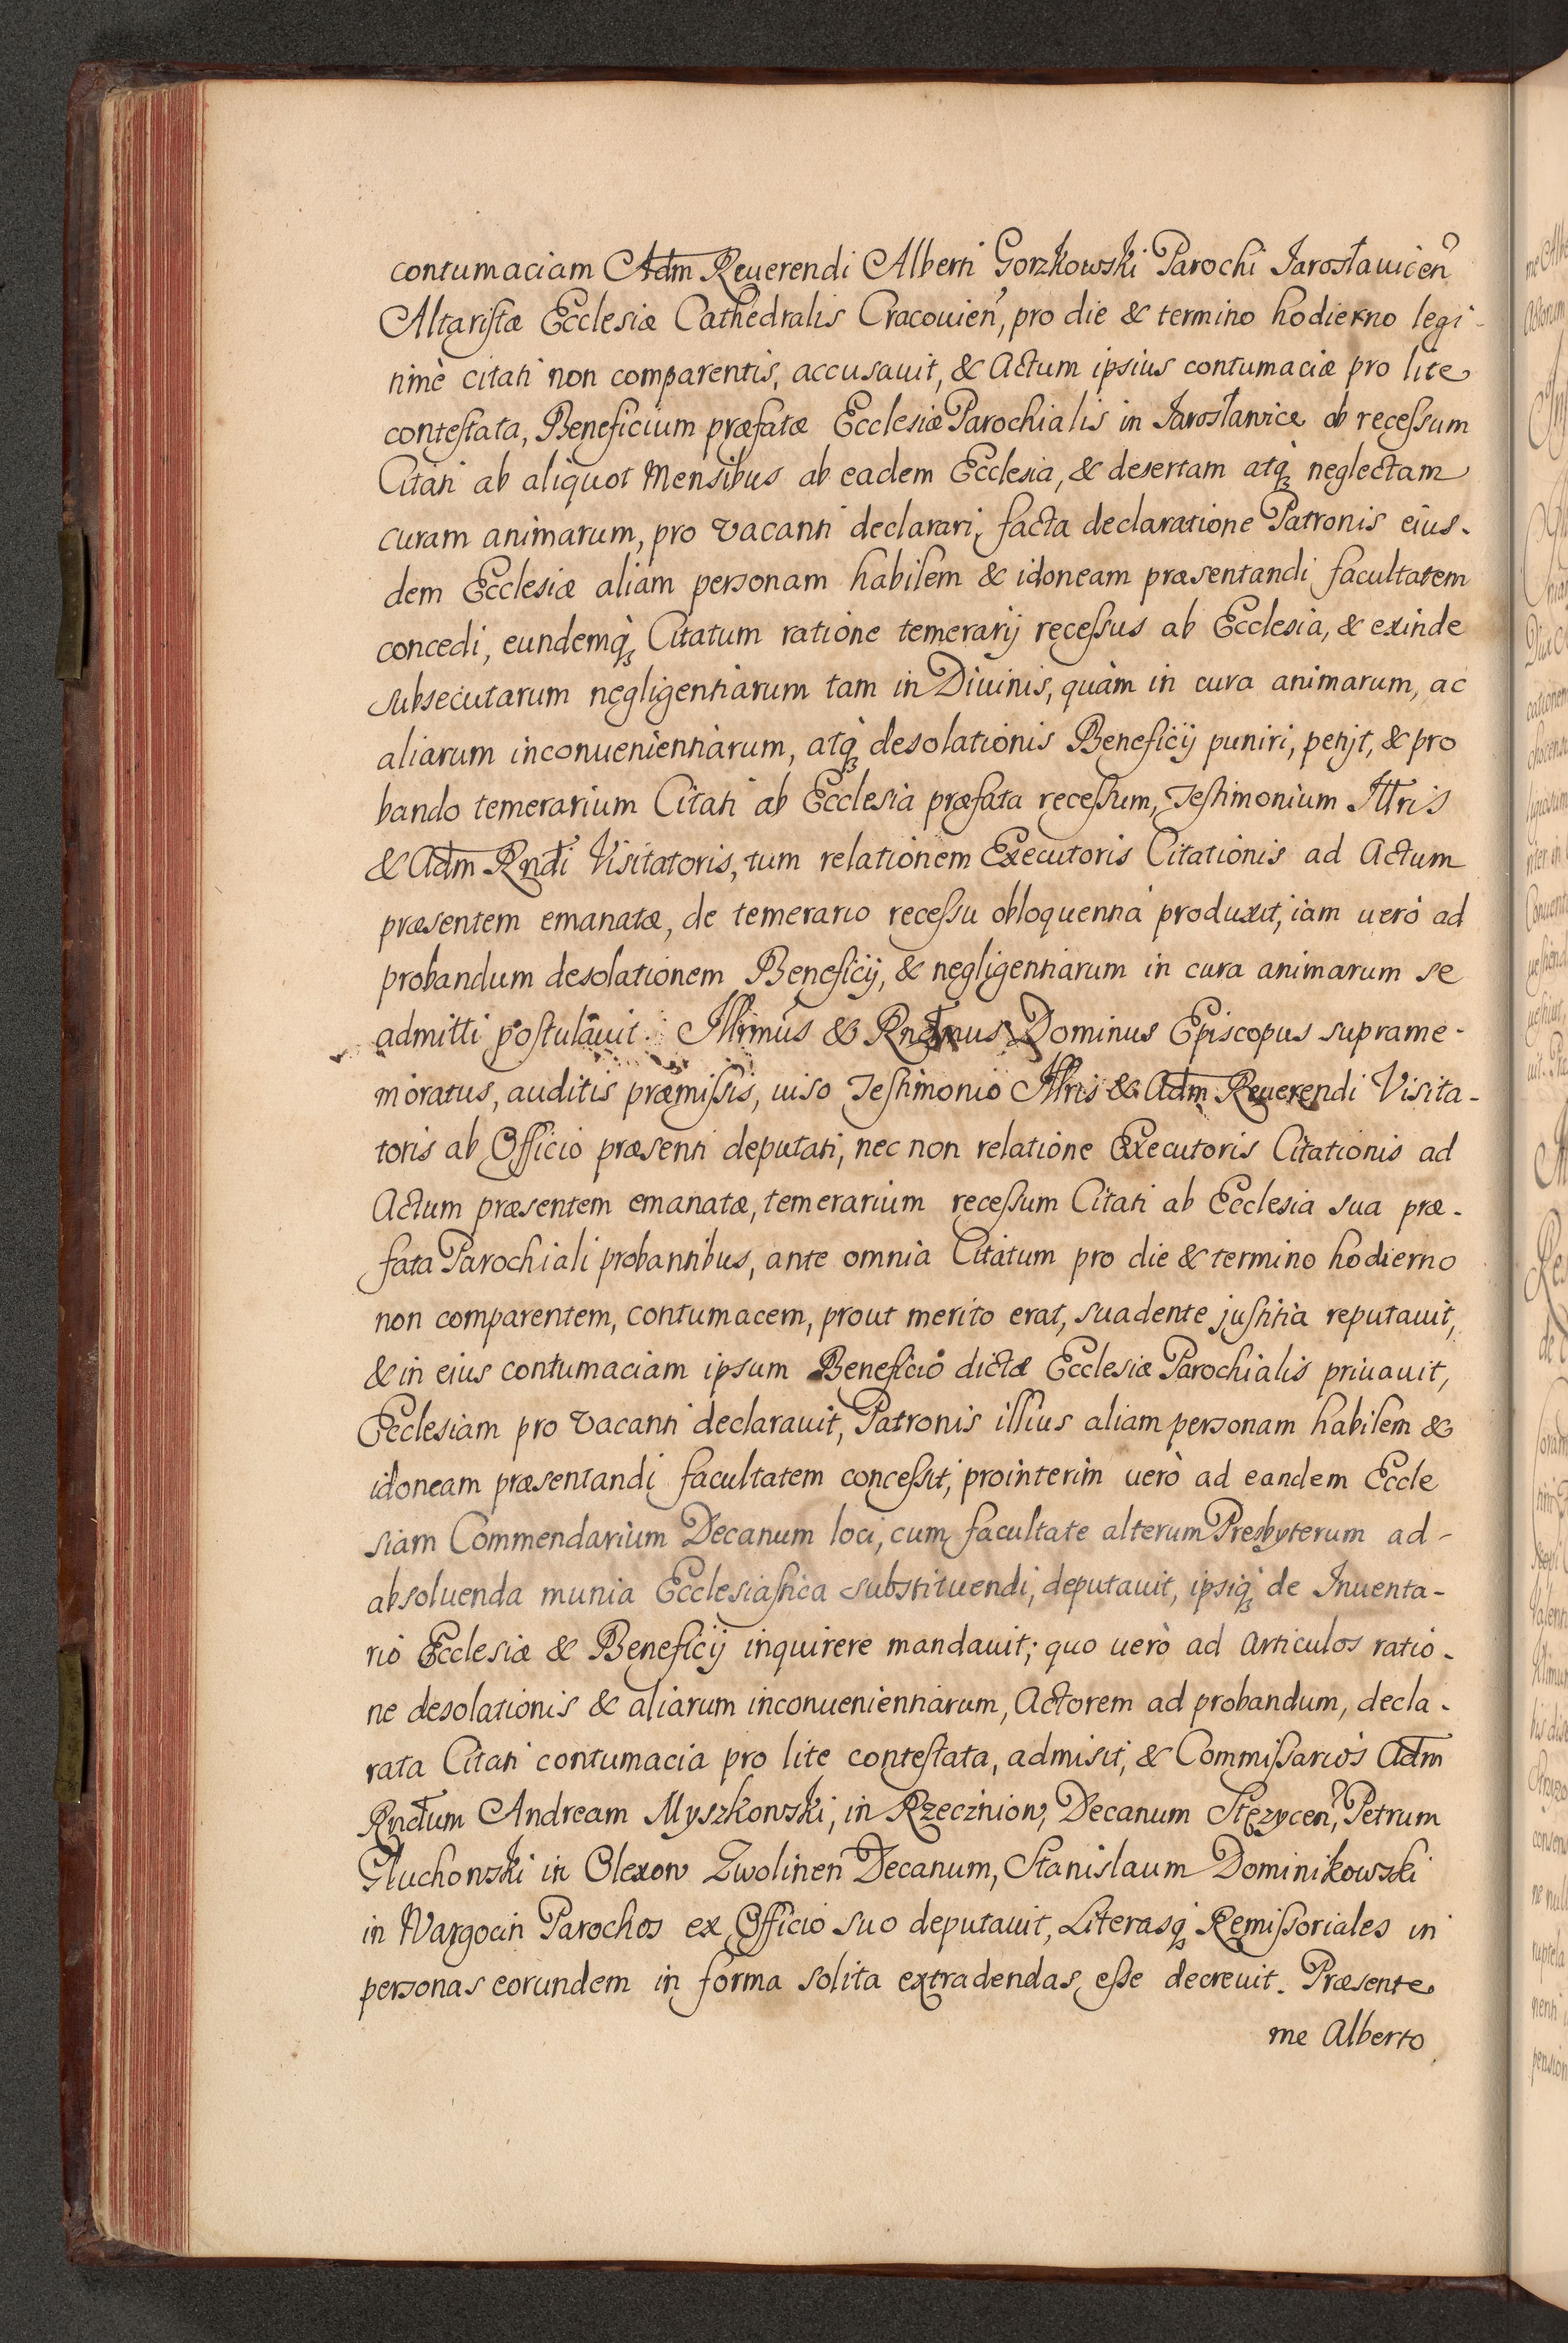 contumaciam Adm Reuerendi Alberti Gorzkowski Parochi Jarosławicen̄
Altaristæ Ecclesiæ Cathedralis Cracouien̄, pro die & termino hodierno legi-
timè citati non comparentis, accusauit, & Actum ipsius contumaciæ pro lite
contestata, Beneficium præfatæ Ecclesiæ Parochialis in Jarosławice ob recessum
Citati ab aliquot Mensibus ab eadem Ecclesia, & desertam atq́ꝫ neglectam
curam animarum, pro vacanti declarari, facta declaratione Patronis eius-
dem Ecclesiæ aliam personam habilem & idoneam præsentandi facultatem
concedi, eundemq́ꝫ Citatum ratione temerarij recessus ab Ecclesia, & exinde
subsecutarum negligentiarum tam in Diuinis, quàm in cura animarum, ac
aliarum inconuenientiarum, atq́ꝫ desolationis Beneficij puniri, petijt, & pro
bando temerarium Citati ab Ecclesia præfata recessum, Testimonium Illris
& Adm Rndi Visitatoris, tum relationem Executoris Citationis ad Actum
præsentem emanatæ, de temerario recessu obloquentia produxit, iam uerò ad
probandum desolationem Beneficij, & negligentiarum in cura animarum se
admitti postulauit. Illrimus & Rndmus Dominus Episcopus suprame-
moratus, auditis præmissis, uiso Testimonio Illris & Adm Reuerendi Visita-
toris ab Officio præsenti deputati, nec non relatione Executoris Citationis ad
Actum præsentem emanatæ, temerarium recessum Citati ab Ecclesia sua præ-
fata Parochiali probantibus, ante omnia Citatum pro die & termino hodierno
non comparentem, contumacem, prout merito erat, suadente justitia reputauit,
& in eius contumaciam ipsum Beneficio dictæ Ecclesiæ Parochialis priuauit,
Ecclesiam pro vacanti declarauit, Patronis illius aliam personam habilem &
idoneam præsentandi facultatem concessit, prointerim uerò ad eandem Eccle
siam Commendarium Decanum loci, cum facultate alterum Presbyterum ad-
absoluenda munia Ecclesiastica substituendi, deputauit, ipsiq́ꝫ de Inuenta-
rio Ecclesiæ & Beneficij inquirere mandauit; quo uerò ad articulos ratio-
ne desolationis & aliarum inconuenientiarum, Actorem ad probandum, decla-
rata Citati contumacia pro lite contestata, admisit, & Commissarios Adm
Rndum Andream Myszkowski, in Rzecznion, Decanum Stęzycen̄, Petrum
Głuchowski in Olexow Zwolinen̄ Decanum, Stanislaum Dominikowski
in Wargocin Parochos ex Officio suo deputauit, Literasq́ꝫ Remissoriales in
personas eorundem in forma solita extradendas esse decreuit. Præsente
me Alberto